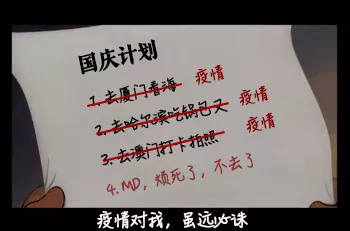 国庆计划
1.去厦门看海 疫情
2.去哈尔滨吃锅包又 疫情
3.去澳门打卡拍照 疫情
4.MD，烦死了，不去了
疫情对我，虽远必诛